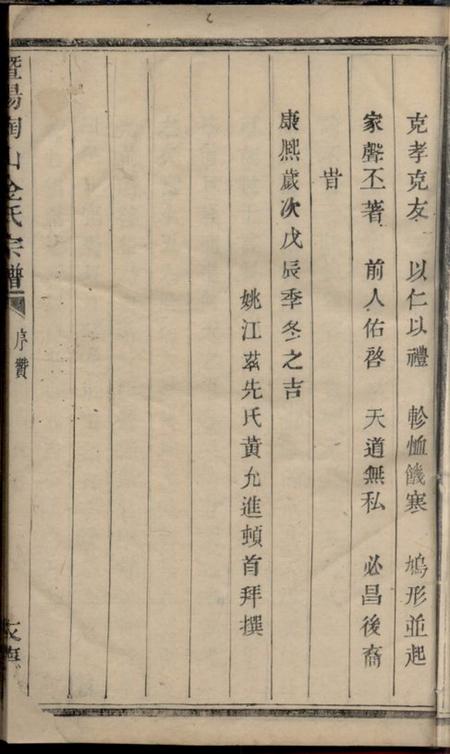 克孝克友 以仁以禮 軫恤饑寒 鳩形並起
家聲丕著 前人佑啓 天道無私 必昌後裔
旹
康熙歲次戊辰季冬之吉
姚江茲先氏黃允進頓首拜撰
暨陽陶山金氏宗譜 序贊